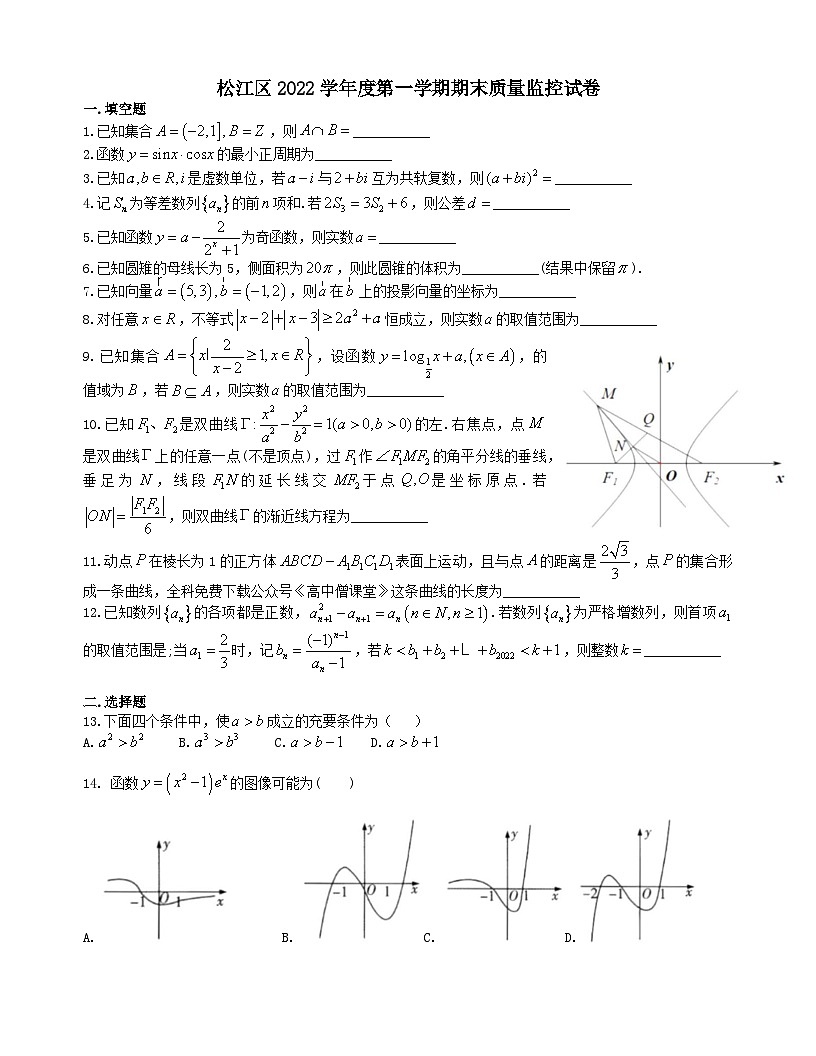 松江区 2022 学年度第一学期期末质量监控试卷
一.填空题
1.已知集合 A=(−2,1], B=Z ，则 A∩B=___________
2.函数 y=sinx·cosx 的最小正周期为___________
3.已知 a,b∈R,i 是虚数单位，若 a−i 与 2+bi 互为共轭复数，则 (a+bi)²=___________
4.记 Sₙ 为等差数列{aₙ}的前 n 项和.若 2S₃=3S₂+6，则公差 d=___________
5.已知函数 y=a−2/(2ˣ+1) 为奇函数，则实数 a=___________
6.已知圆雉的母线长为 5，侧面积为 20π，则此圆锥的体积为___________(结果中保留 π).
7.已知向量 a=(5,3), b=(−1,2)，则 a 在 b 上的投影向量的坐标为___________
8.对任意 x∈R，不等式 |x−2|+|x−3|≥2a²+a 恒成立，则实数 a 的取值范围为___________
9. 已知集合 A={x|2/(x−2)≥1, x∈R}，设函数 y=log_{1/2}x+a,(x∈A)，的
值域为 B，若 B⊆A，则实数 a 的取值范围为___________
10.已知 F₁、F₂ 是双曲线 Γ: x²/a²−y²/b²=1(a>0,b>0) 的左.右焦点，点 M
是双曲线 Γ 上的任意一点(不是顶点)，过 F₁ 作 ∠F₁MF₂ 的角平分线的垂线，
垂足为 N，线段 F₁N 的延长线交 MF₂ 于点 Q,O 是坐标原点.若
|ON|=|F₁F₂|/6，则双曲线 Γ 的渐近线方程为___________
y
M
Q
N
F₁
O
F₂
x
11.动点 P 在棱长为 1 的正方体 ABCD−A₁B₁C₁D₁ 表面上运动，且与点 A 的距离是 2√3/3，点 P 的集合形
成一条曲线，全科免费下载公众号《高中僧课堂》这条曲线的长度为___________
12.已知数列{aₙ}的各项都是正数，aₙ₊₁²−aₙ₊₁=aₙ(n∈N,n≥1).若数列{aₙ}为严格增数列，则首项 a₁
的取值范围是;当 a₁=2/3 时，记 bₙ=(−1)ⁿ⁻¹/(aₙ−1)，若 k<b₁+b₂+L +b₂₀₂₂<k+1，则整数 k=___________
二.选择题
13.下面四个条件中，使 a>b 成立的充要条件为（ ）
A.a²>b² B.a³>b³ C.a>b−1 D.a>b+1
14. 函数 y=(x²−1)eˣ 的图像可能为( )
y −1 O 1 x
y −1 O 1 x
y −1 O 1 x
y −2 −1 O 1 x
A. B. C. D.